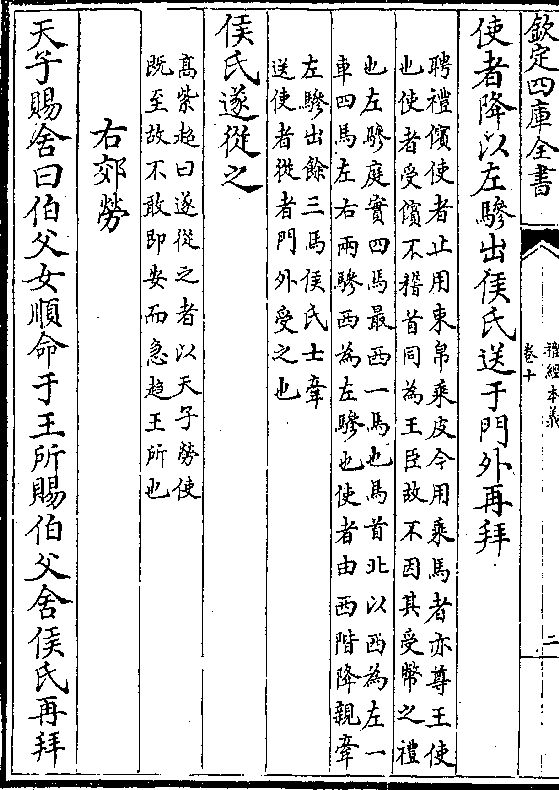 欽定四庫全書
禮經本義
卷十
二
使者降以左驂出侯氏送于門外再拜
聘禮儐使者止用束帛乘皮今用乘馬者亦尊王使
也使者受儐不稽首同為王臣故不因其受幣之禮
也左驂庭實四馬最西一馬也馬首北以西為左一
車四馬左右兩驂西為左驂也使者由西階降親牽
左驂出餘三馬侯氏士牽
送使者從者門外受之也
侯氏遂從之
高紫超曰遂從之者以天子勞使
既至故不敢即安而急趋王所也
右郊勞
天子賜舍曰伯父女順命于王所賜伯父舍侯氏再拜